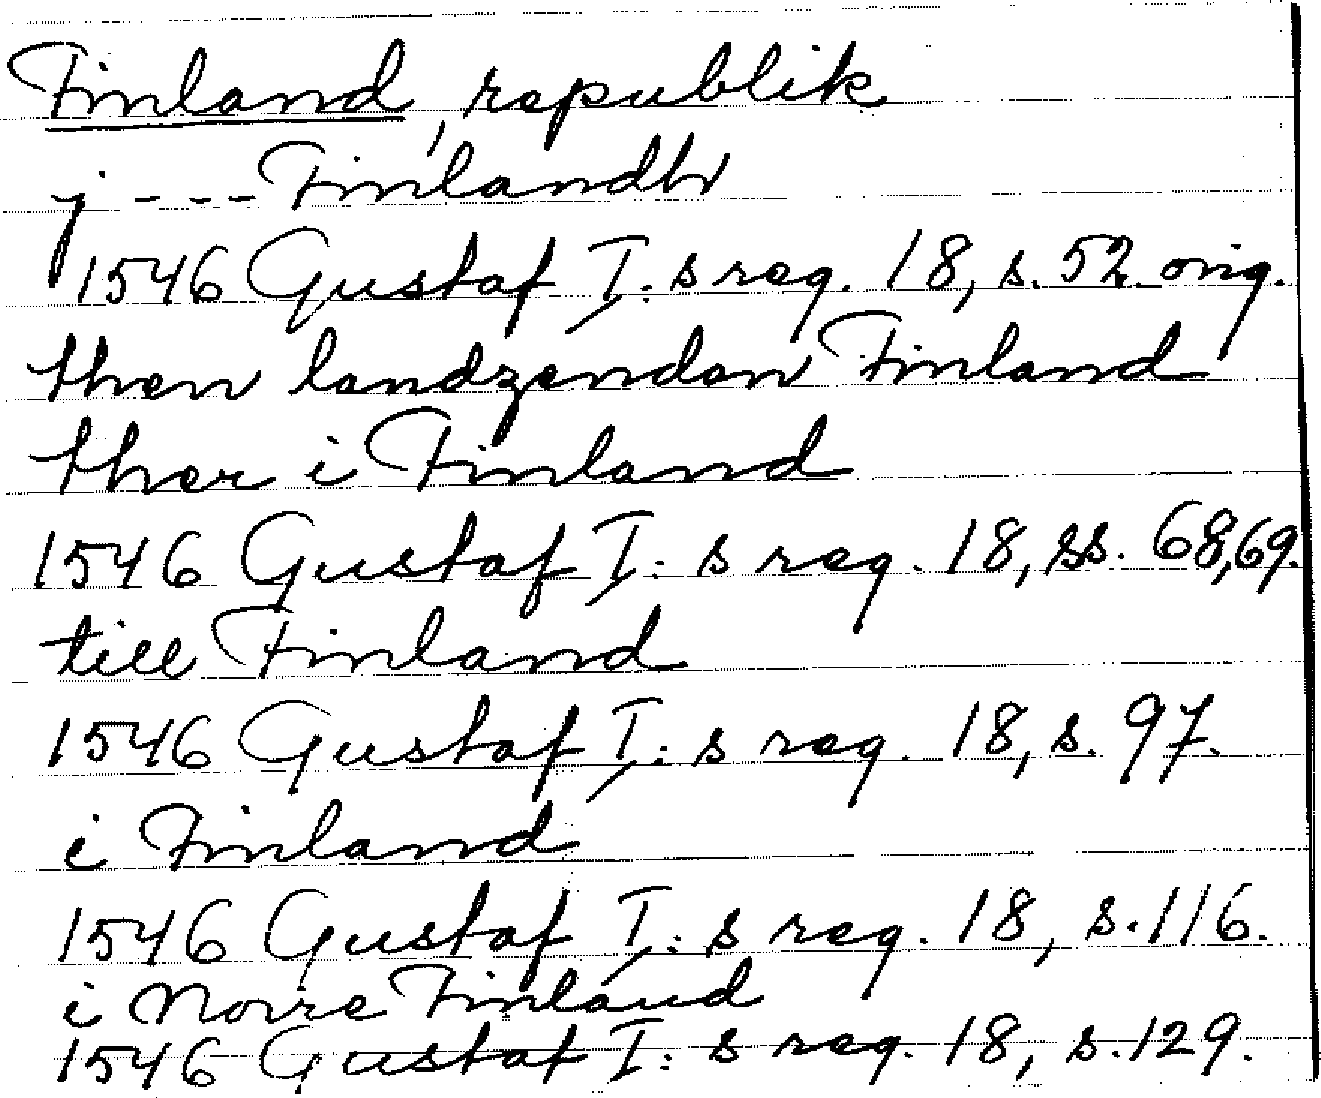 Finland, republik
j - - - Finlandh
1546 Gustaf I: s reg. 18, s. 52. orig.
then landzendan Finland
ther i Finland
1546 Gustaf I: s reg. 18, ss. 68, 69.
till Finland
1546 Gustaf I: s reg. 18, s. 97.
i Finland
1546 Gustaf I: s reg. 18, s. 116.
i Norre Finland
1546 Gustaf I: s reg. 18, s. 129.